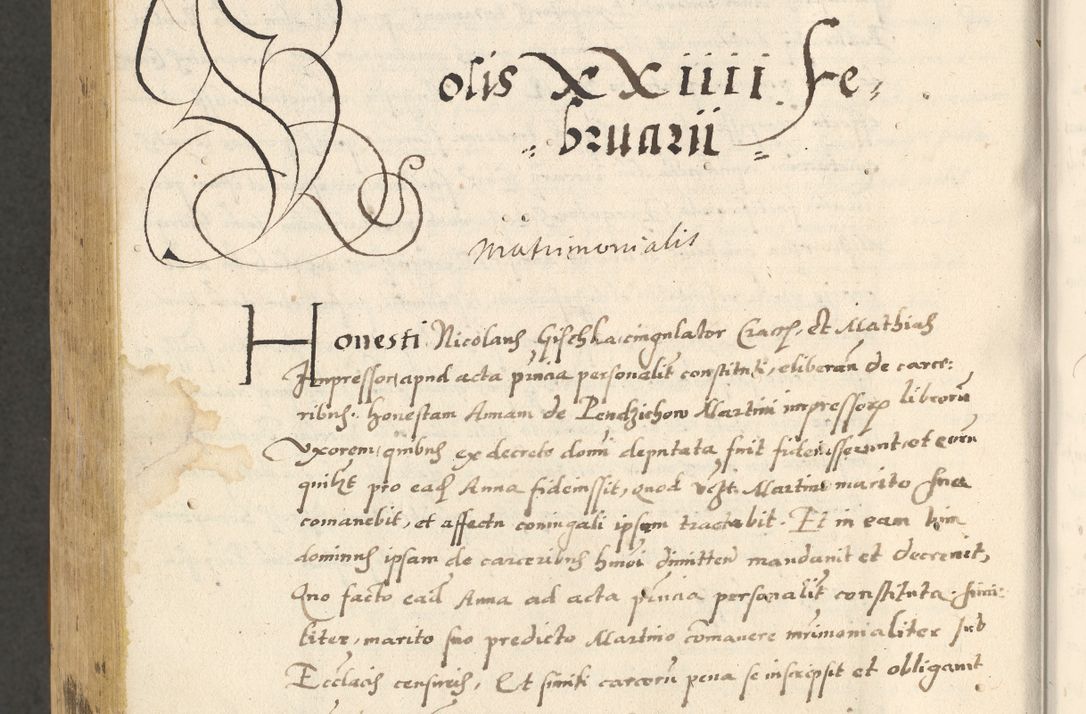 Solis XXIIII Fe-
bruarii
Matrimonialis
Honesti Nicolaus Gischka cingulator Crac. et Mathias
Impressor, apud acta pñcia personalit constituti, eliberan de carce:
ribus honestam Annam de Pendzichow Martini impressoris librorũ
Vxorem, quibus ex decreto domi deputata fuit fideiusserunt, et eorũ
quilzt pro ead Anna fideiussit, quod Martino marito suo
comanebit, et affectu coniugali ipsum tractabit. Et in eam vim
dominus ipsam de carceribus hmoi dimitten mandauit et decreuit,
Quo facto ead Anna ad acta pñcia personalit constituta simi:
liter, marito suo predicto Martino comanere mrimonialiter sub
Ecclacis censuris, Et simili carcerũ pena se inscripsit et obligauit